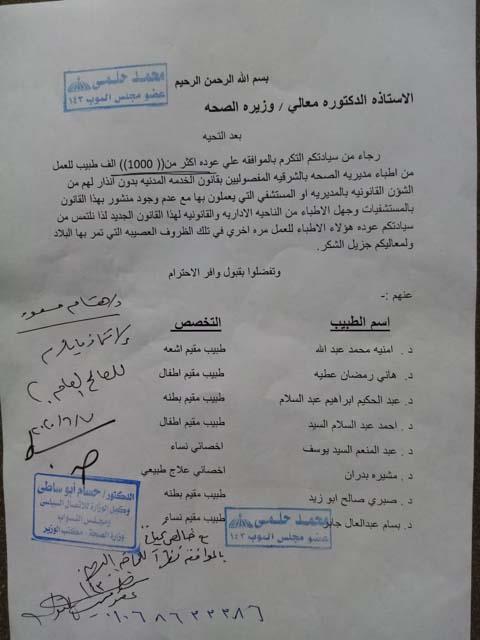 محمد حلمى
عضو مجلس النواب ١٤٣
بسم الله الرحمن الرحيم
الاستاذه الدكتوره معالي / وزيره الصحه
بعد التحيه
رجاء من سيادتكم التكرم بالموافقه علي عوده اكثر من(( 1000)) الف طبيب للعمل
من اطباء مديريه الصحه بالشرقيه المفصوليين بقانون الخدمه المدنيه بدون أنذار لهم من
الشؤن القانونيه بالمديريه او المستشفي التي يعملون بها مع عدم وجود منشور بهذا القانون
بالمستشفيات وجهل الاطباء من الناحيه الاداريه والقانونيه لهذا القانون الجديد لذا نلتمس من
سيادتكم عوده هؤلاء الاطباء للعمل مره اخري في تلك الظروف العصيبه التي تمر بها البلاد
ولمعاليكم جزيل الشكر.
وتفضلوا بقبول وافر الاحترام
عنهم :-
اسم الطبيب التخصص
د . امنيه محمد عبد الله طبيب مقيم اشعه
د. هاني رمضان عطيه طبيب مقيم اطفال
د. عبد الحكيم ابراهيم عبد السلام طبيب مقيم بطنه
د. احمد عبد السلام السيد طبيب مقيم اطفال
د. عبد المنعم السيد يوسف اخصائي نساء
د. مشيره بدران اخصائي علاج طبيعي
د. صبري صالح ابو زيد طبيب مقيم بطنه
د. بسام عبدالعال جابر طبيب مقيم نساء
محمد حلمى
عضو مجلس النواب ١٤٣
د/هشام مسعود
للصالح العام
٢٠٢٠/٦/٧
الدكتور / حسام أبو ساطى
وكيل الوزارة للاتصال السياسى
ومجلس النواب
وزارة الصحة - مكتب الوزير
مع خالص
بالموافقه نظراً
٠١٠٦٨٦٣٣٣٨٦